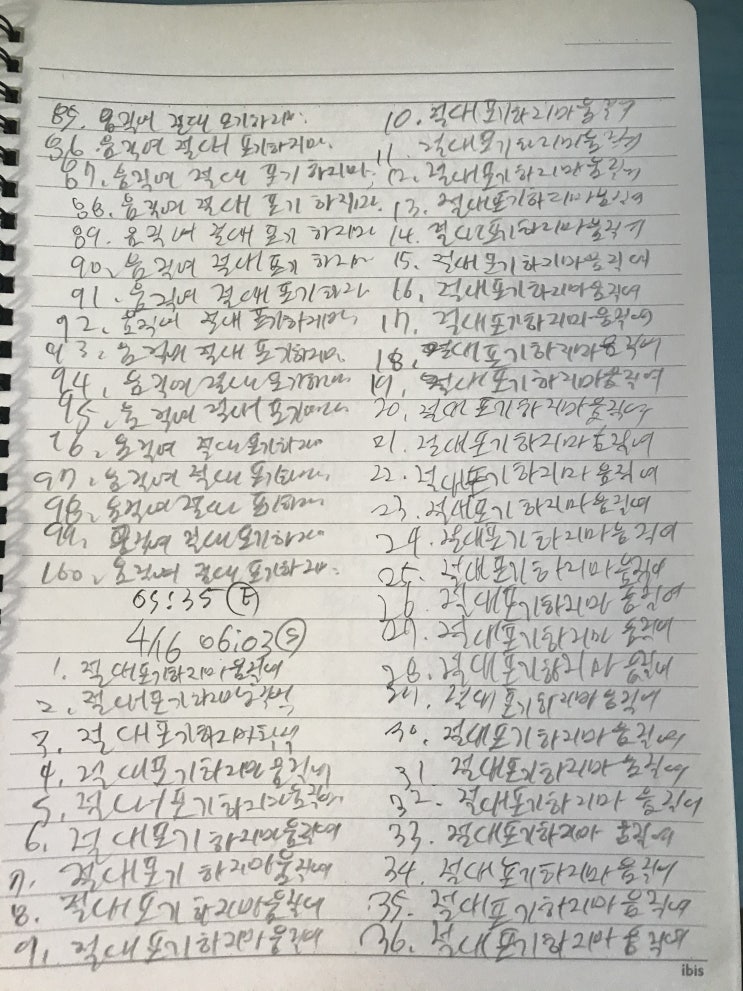 85. 움직여 절대 포기하지마.
86. 움직여 절대 포기하지마.
87. 움직여 절대 포기 하지마.
88. 움직여 절대 포기 하지마.
89. 움직여 절대 포기 하지마
90. 움직여 절대 포기 하지마
91. 움직여 절대 포기하지마
92. 움직여 절대 포기하지마.
93. 움직여 절대 포기하지마.
94. 움직여 절대 포기하지마
95. 움직여 절대 포기하지마
96. 움직여 절대 포기하지마
97. 움직여 절대 포기하지마.
98. 움직여 절대 포기하지마
99. 움직여 절대 포기하지마
100. 움직여 절대 포기하지마.
05:35 E
4/16 06:03 S
1. 절대포기하지마움직여
2. 절대포기하지마움직여
3. 절대포기하지마
4. 절대포기하지마움직여
5. 절대포기하지마움직여
6. 절대포기하지마움직여
7. 절대포기 하지마움직여
8. 절대포기 하지마움직여
9. 절대포기하지마움직여
10. 절대포기하지마움직여
11. 절대포기하지마움직여
12. 절대포기하지마움직여
13. 절대포기하지마움직여
14. 절대포기하지마움직여
15. 절대포기하지마움직여
16. 절대포기하지마움직여
17. 절대포기하지마움직여
18. 절대포기하지마움직여
19. 절대포기하지마움직여
20. 절대포기하지마움직여
21. 절대포기하지마움직여
22. 절대포기하지마 움직여
23. 절대포기하지마움직여
24. 절대포기하지마움직여
25. 절대포기하지마움직여
26. 절대포기하지마 움직여
27. 절대포기하지마 움직여
28. 절대포기하지마 움직여
절대 포기하지마움직여
30. 절대포기하지마 움직여
31. 절대포기하지마 움직여
32. 절대포기하지마 움직여
33. 절대포기하지마 움직여
34. 절대포기하지마움직여
35. 절대포기하지마움직여
36. 절대포기하지마움직여
ibis